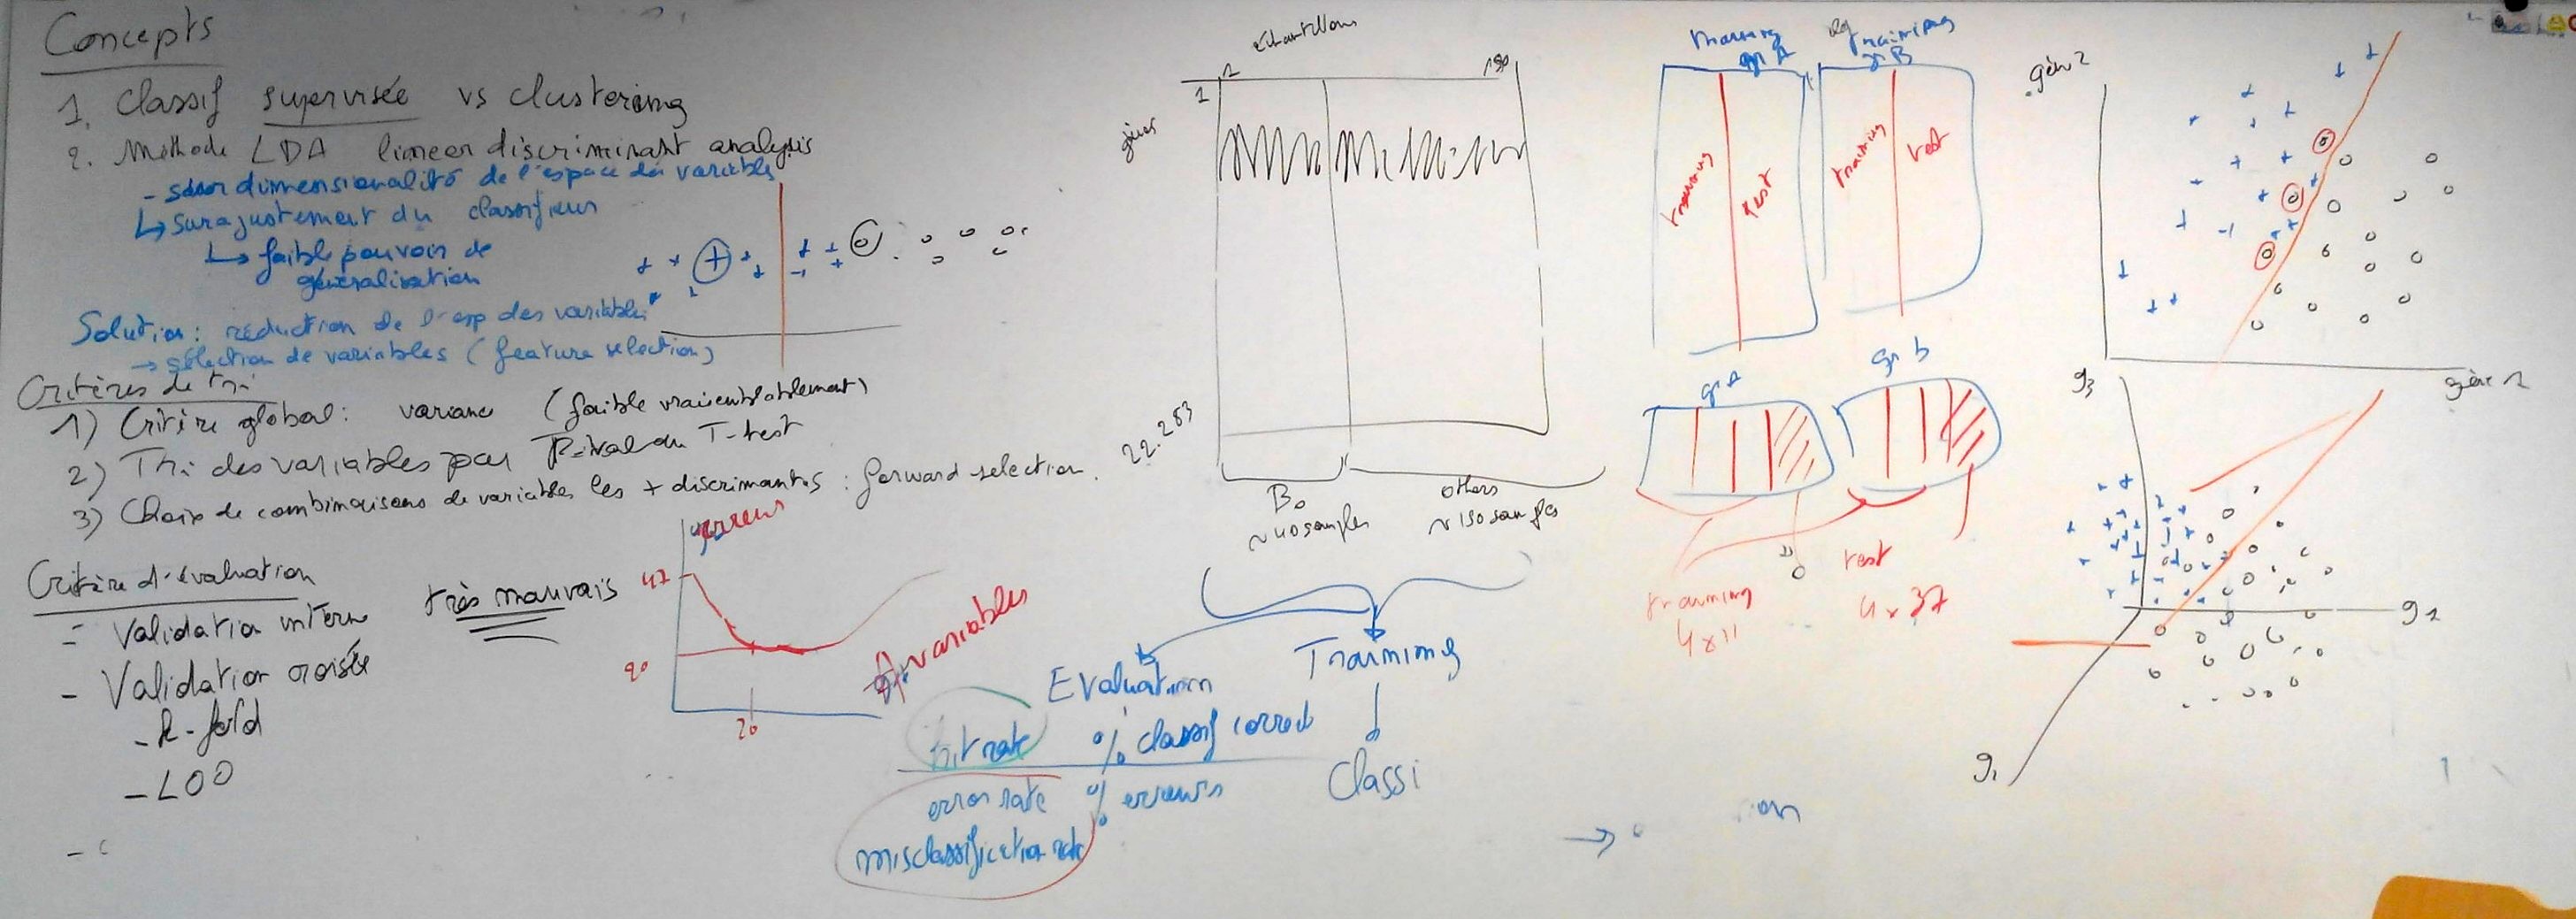 Concepts
1. Classif supervisée vs clustering
2. Méthode LDA linear discriminant analysis
- dimensionalité de l'espace des variables
↳ surajustement du classifieur
↳ faible pouvoir de
généralisation
Solution : réduction de l'esp des variables
→ sélection de variables (feature selection)
Critères de tri
1) Critère global : variance (faible vraisemblablement)
2) Tri des variables par P-val du T-test
3) Choix de combinaisons de variables les + discrimantes : forward selection.
Critère d'évaluation
- Validation interne très mauvais
- Validation croisée
- k-fold
- LOO
erreurs
47
20
20
# variables
échantillons
1 190
1
gènes
22.283
Bo
~40 samples
others
~150 samples
Evaluation
Training
hit rate % classif correct
error rate % erreurs
misclassification rate
Classi
training
gr A
training
gr B
training
test
training
test
gr A
gr b
training
4x11
test
4x37
gène 2
gène 1
g3
g2
g1
on